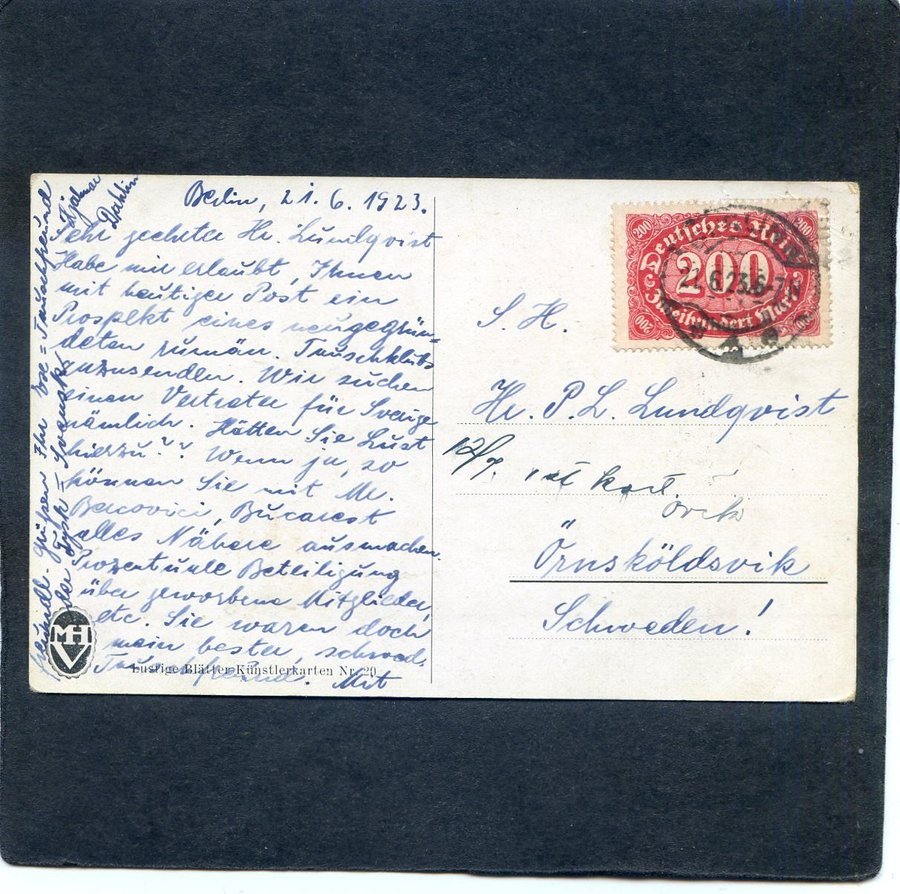 Berlin, 21. 6. 1923.
Sehr geehrter Hr. Lundqvist
Habe mir erlaubt, Ihnen
mit heutiger Post ein
Prospekt eines neugegrün-
deten rumän. Tauschklubs
zuzusenden. Wir suchen
einen Vertreter für Sverige
nämlich. Hätten Sie Lust
hierzu?? Wenn ja, so
können Sie mit Mr.
Bercovici, Bucarest
alles Nähere ausmachen.
Prozentuale Beteiligung
über geworbene Mitglieder,
etc. Sie waren doch
mein bester schwed.
Tauschfreund. Mit
freundl. Grüßen Ihr
Tysk = Svensk
Tauschfreund
Hjalmar
Dahlin
MHV
Lustige Blätter-Künstlerkarten Nr. 20
Deutsches Reich
200
200
200
200
200
Zweihundert Mark
21.6.23.6-7
S. H.
Hr. P. L. Lundqvist
12/7. kort.
Örnsköldsvik
Schweden!